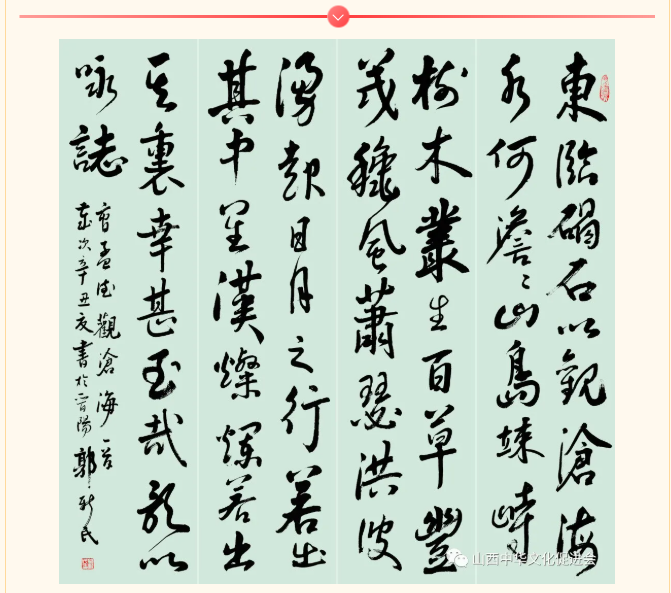 東臨碣石以觀滄海
水何澹〻山島竦峙
樹木叢生百草豐
茂龝風蕭瑟洪波
湧起日月之行若出
其中星漢燦爛若出
其裏幸甚至哉歌以
咏誌
曹孟德觀滄海一首
歲次辛丑夏書於晋陽 郭新民
山西中华文化促进会